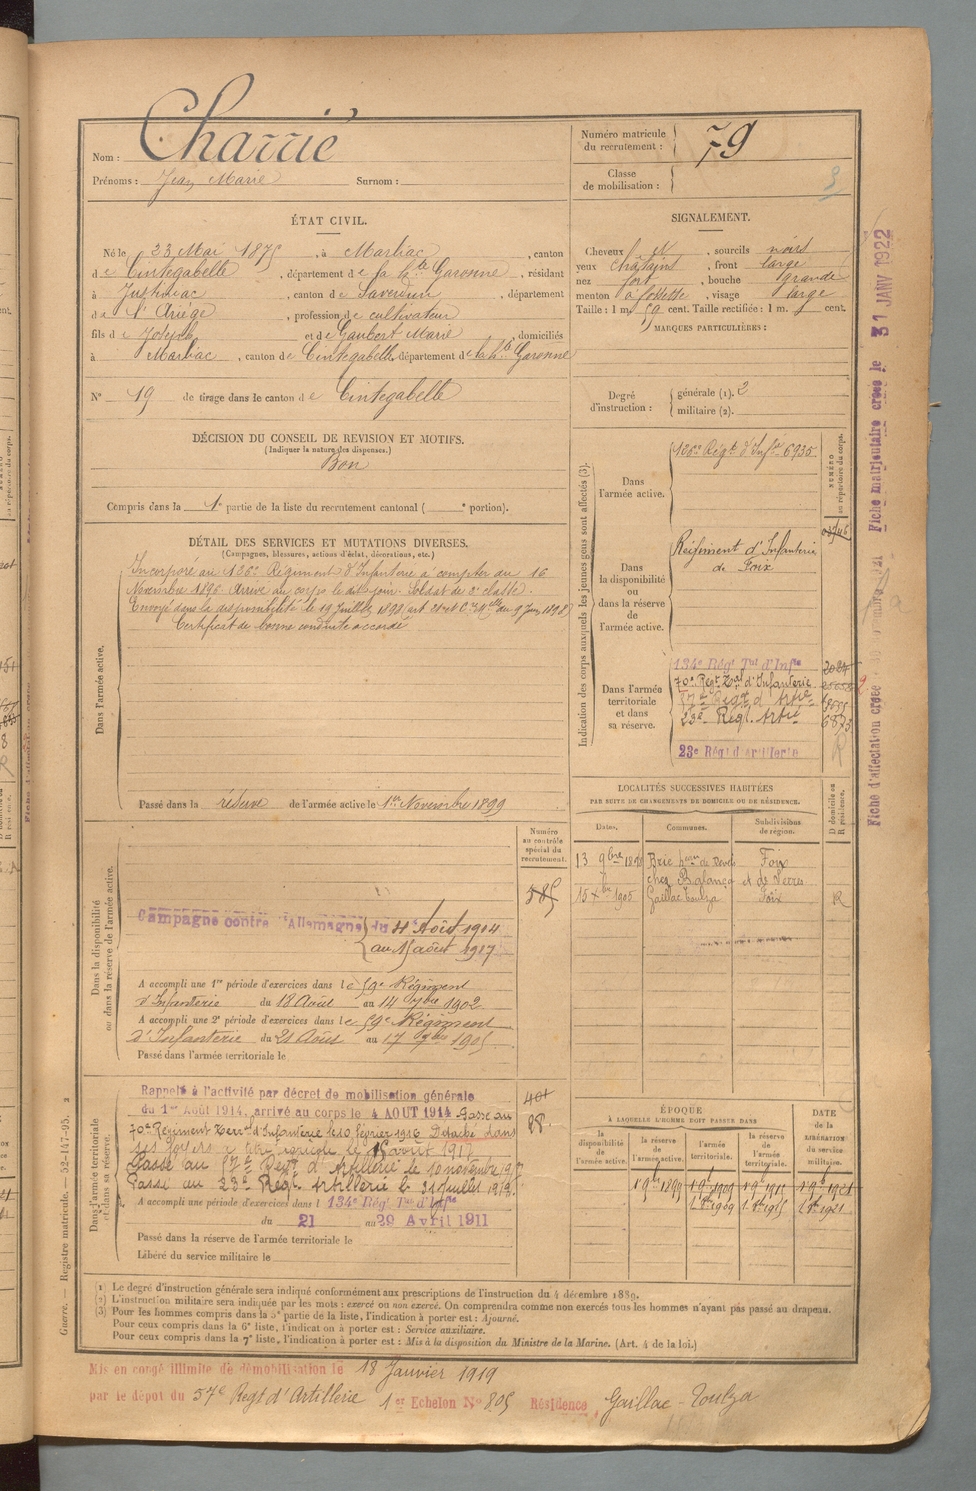 Nom : Charrié
Prénoms : Jean Marie Surnom :
Numéro matricule du recrutement : 79
Classe de mobilisation :
ÉTAT CIVIL.
Né le 23 Mai 1875, à Marliac, canton
de Cintegabelle, département de la hte Garonne, résidant
à Justiniac, canton de Saverdun, département
de l'Ariège, profession de cultivateur
fils de Joseph et de Gaubert Marie domiciliés
à Marliac, canton de Cintegabelle, département de la hte Garonne
N° 19 de tirage dans le canton de Cintegabelle
SIGNALEMENT.
Cheveux et, sourcils noirs
yeux châtains, front large
nez fort, bouche grande
menton à fossette, visage large
Taille : 1 m. 59 cent. Taille rectifiée : 1 m. cent.
MARQUES PARTICULIÈRES :
Degré d'instruction : générale (1). 2
militaire (2).
DÉCISION DU CONSEIL DE REVISION ET MOTIFS.
(Indiquer la nature des dispenses.)
Bon
Compris dans la 1e partie de la liste du recrutement cantonal ( e portion).
DÉTAIL DES SERVICES ET MUTATIONS DIVERSES.
(Campagnes, blessures, actions d'éclat, décorations, etc.)
Dans l'armée active.
Incorporé au 136e Régiment d'Infanterie à compter du 16
Novembre 1896. Arrivé au corps le dit jour. Soldat de 2e classe.
Envoyé dans la disponibilité le 19 Juillet 1899
Certificat de bonne conduite accordé
Passé dans la réserve de l'armée active le 1er Novembre 1899
Indication des corps auxquels les jeunes gens sont affectés (3).
NUMÉRO au répertoire du corps.
Dans l'armée active.
136e Régt d'Infie 6935
Dans la disponibilité ou dans la réserve de l'armée active.
Régiment d'Infanterie
de Foix
Dans l'armée territoriale et dans sa réserve.
134e Régt Tal d'Infie
70e Régt Ter d'Infanterie
57e Régt d'Artie
23e Régt. Artie
23e Régt d'Artillerie
LOCALITÉS SUCCESSIVES HABITÉES
PAR SUITE DE CHANGEMENTS DE DOMICILE OU DE RÉSIDENCE.
Dates. Communes. Subdivisions de région. D domicile ou R résidence.
Foix
15 Xbre 1905 Gaillac Toulza Foix R
Dans la disponibilité ou dans la réserve de l'armée active.
Numéro au contrôle spécial du recrutement.
585
Campagne contre l'Allemagne du 4 Août 1914
au 15 août 1917
A accompli une 1re période d'exercices dans le 59e Régiment
d'Infanterie du 18 Août au 14 7bre 1902
A accompli une 2e période d'exercices dans le 59e Régiment
d'Infanterie du 21 Août au 17 7bre 1905
Passé dans l'armée territoriale le
Dans l'armée territoriale et dans sa réserve.
Rappelé à l'activité par décret de mobilisation générale
du 1er Août 1914, arrivé au corps le 4 AOUT 1914 Passé au
70e Régiment Terral d'Infanterie le 10 février 1916 Détaché dans
ses foyers le 15 août 1917
Passé au 57e Régt d'Artillerie le 10 novembre 1917
Passé au 23e Régt. Artillerie le 31 Juillet 1919.
A accompli une période d'exercices dans l 134e Régt Tal d'Infie
du 21 au 29 Avril 1911
Passé dans la réserve de l'armée territoriale le
Libéré du service militaire le
ÉPOQUE
À LAQUELLE L'HOMME DOIT PASSER DANS
la disponibilité de l'armée active. la réserve de l'armée active. l'armée territoriale. la réserve de l'armée territoriale.
DATE DE LA LIBÉRATION du service militaire.
1er 9bre 1899 1er 9bre 1909 1er 9bre 1915 1er 9bre 1921
(1) Le degré d'instruction générale sera indiqué conformément aux prescriptions de l'instruction du 4 décembre 1889.
(2) L'instruction militaire sera indiquée par les mots : exercé ou non exercé. On comprendra comme non exercés tous les hommes n'ayant pas passé au drapeau.
(3) Pour les hommes compris dans la 5e partie de la liste, l'indication à porter est : Ajourné.
Pour ceux compris dans la 6e liste, l'indication à porter est : Service auxiliaire.
Pour ceux compris dans la 7e liste, l'indication à porter est : Mis à la disposition du Ministre de la Marine. (Art. 4 de la loi.)
Mis en congé illimité de démobilisation le 18 Janvier 1919
par le dépôt du 57e Regt d'Artillerie 1er Echelon N° 805 Résidence, Gaillac-Toulza
Guerre. — Registre matricule. — 52-147-95.
Fiche matriculaire créée le 31 JANV 1922
Fiche d'affectation créée